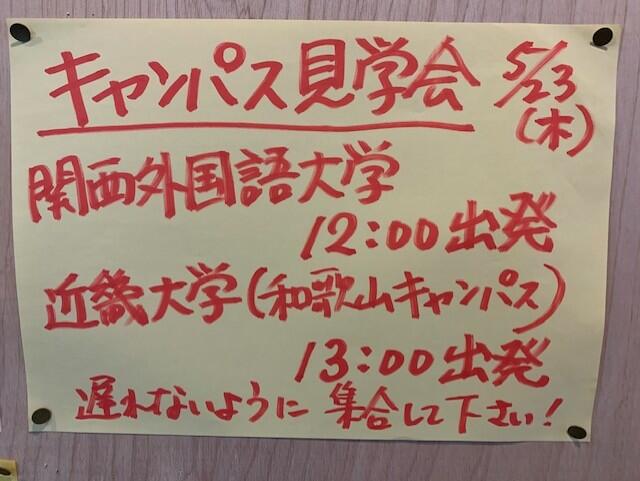 キャンパス見学会 5/23
(木)
関西外国語大学
12:00出発
近畿大学(和歌山キャンパス)
13:00出発
遅れないように 集合して下さい!